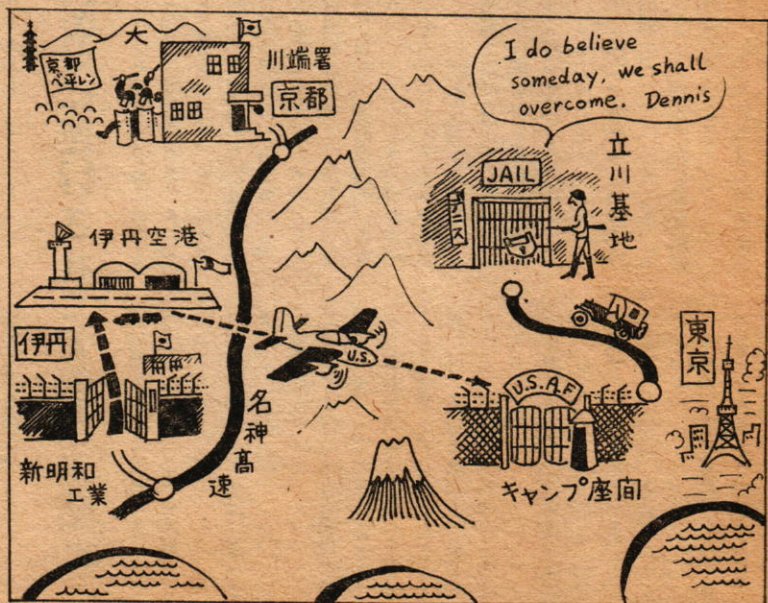 大
京都
ベ平レン
川端署
京都
I do believe
someday, we shall
overcome. Dennis
JAIL
デニス
立川基地
伊丹空港
伊丹
U.S.
U.S.A.F
東京
名神高速
新明和
工業
キャンプ座間